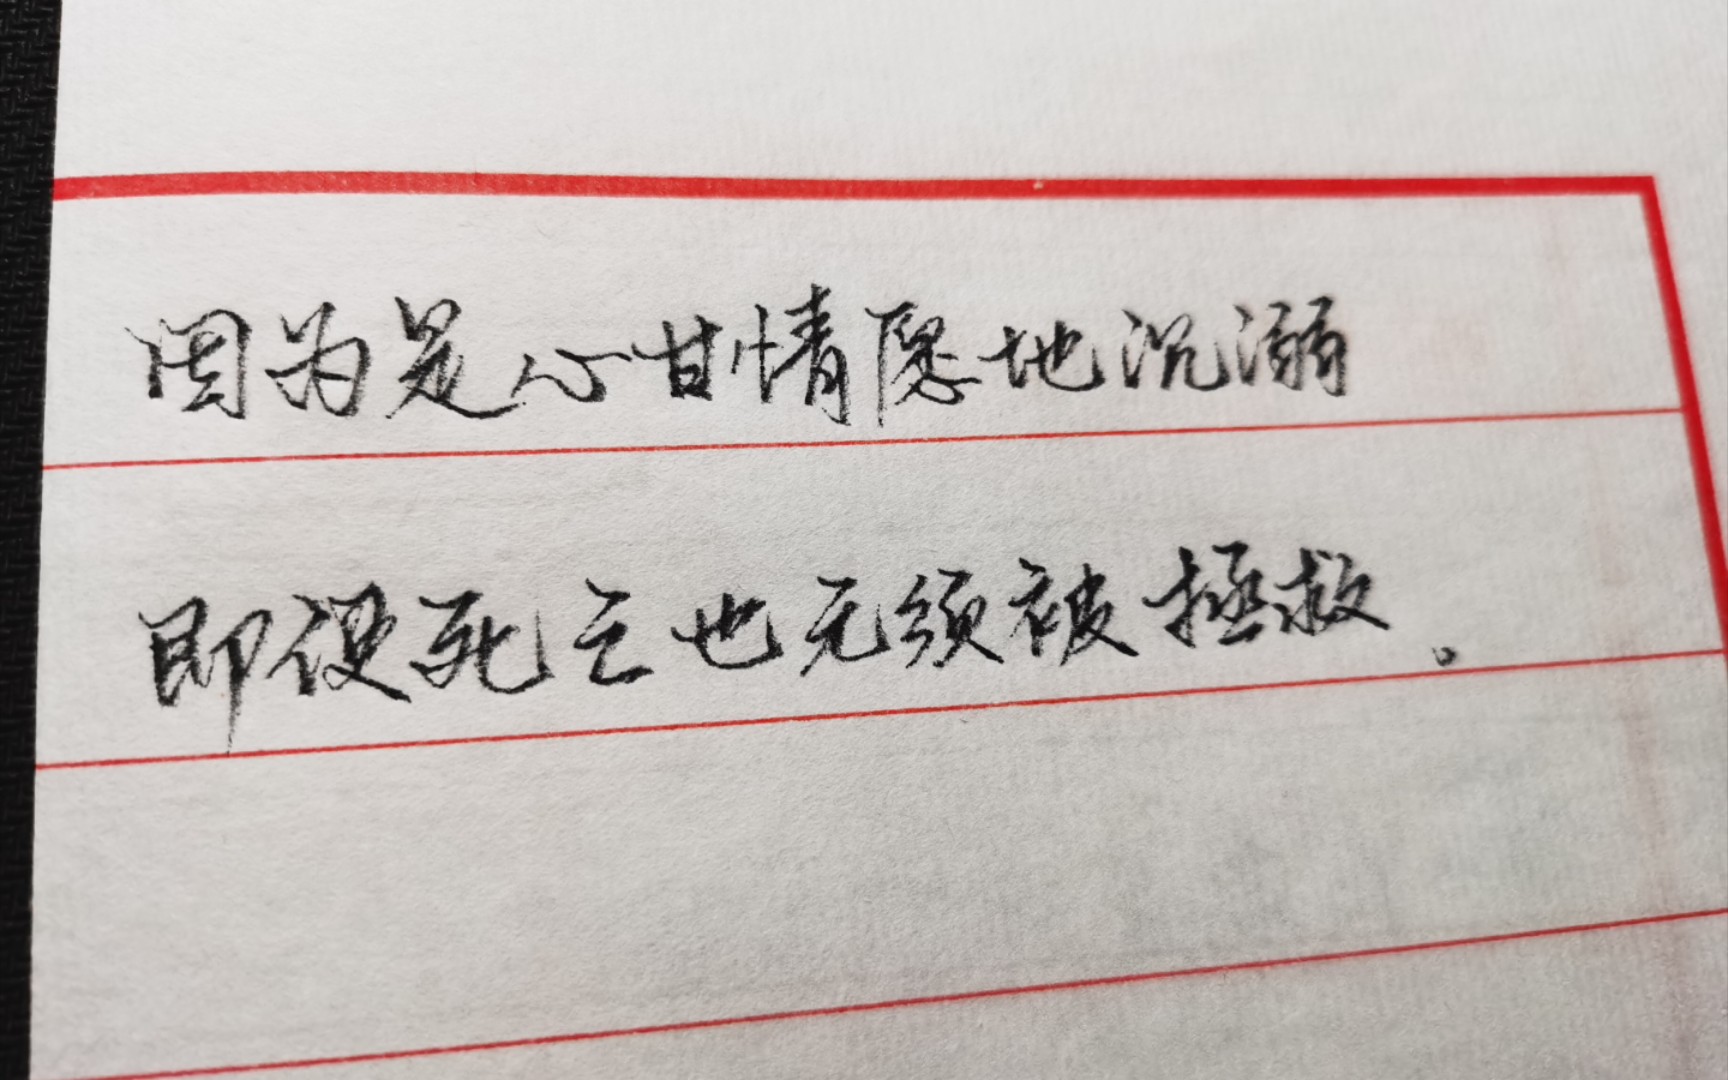 因为是心甘情愿地沉溺
即便死亡也无须被拯救。